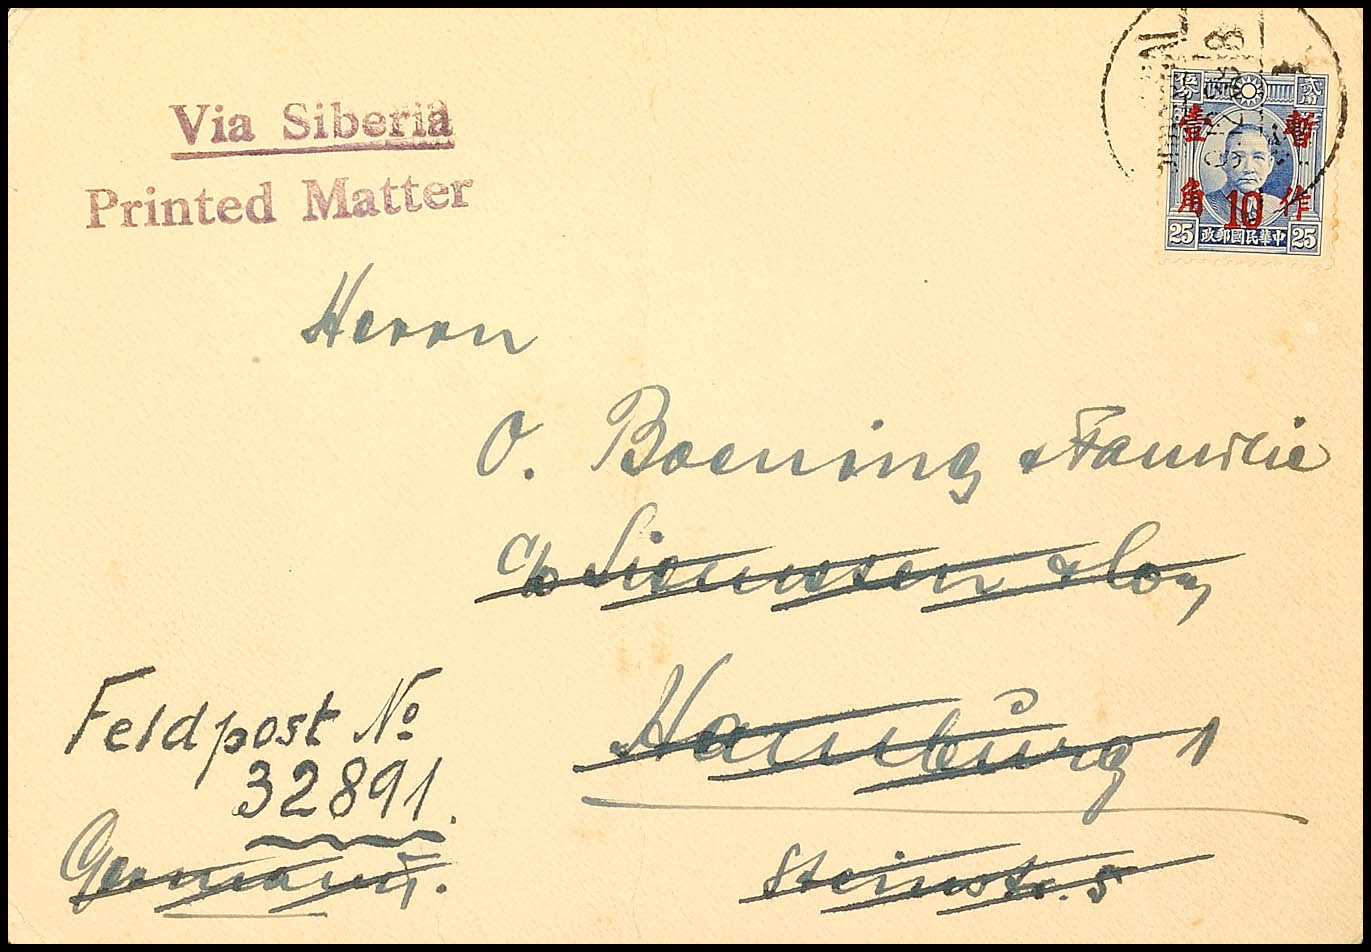 Via Siberia
Printed Matter
貳 伍
壹 暫
角 10 作
25 政郵國民華中 25
Herrn
O. Boening & Familie
c/o Siemssen & Co,
Hamburg 1
Steinstr. 5
Feldpost No
32891.
Germany.